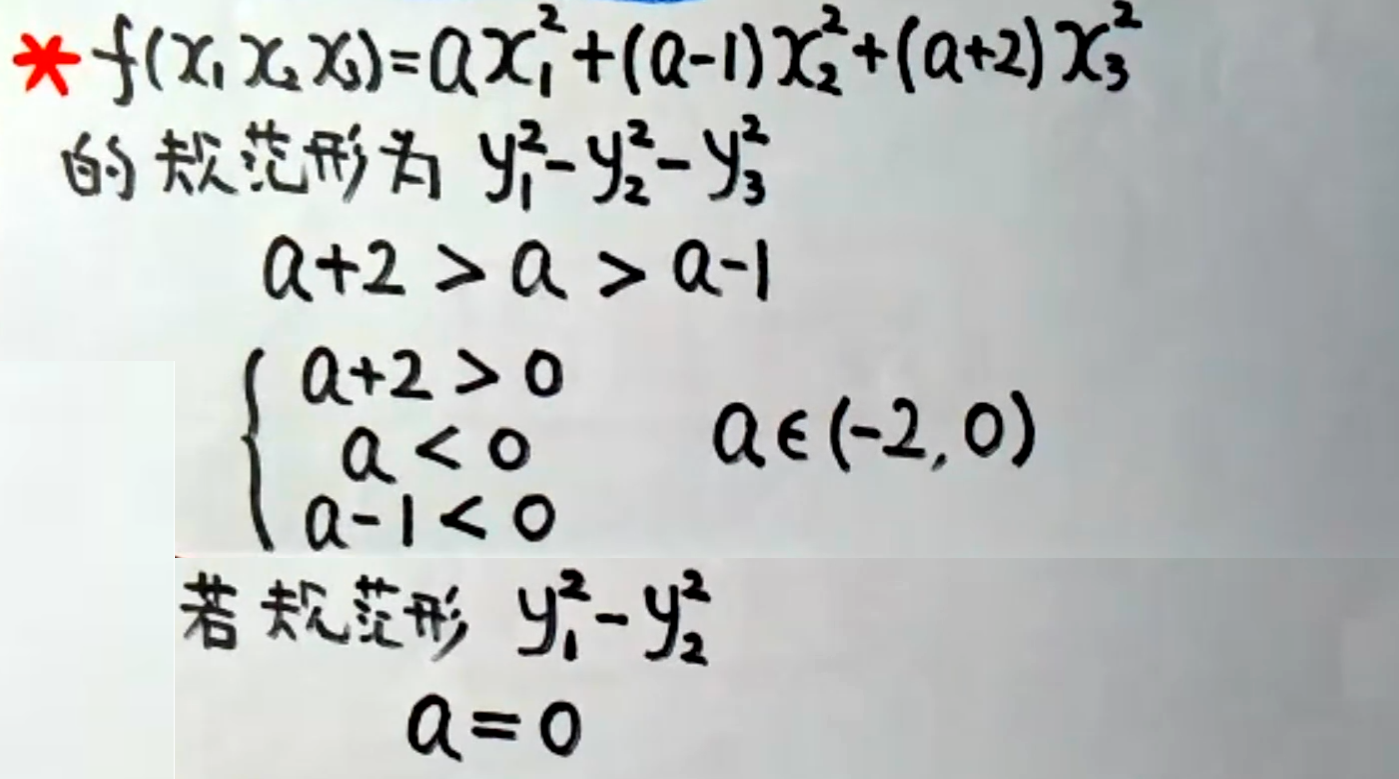 * f(x₁ x₂ x₃)=ax₁²+(a-1)x₂²+(a+2)x₃²
的规范形为 y₁²-y₂²-y₃²
a+2 > a > a-1
a+2 > 0
a < 0
a-1 < 0
a∈(-2,0)
若规范形 y₁²-y₂²
a=0